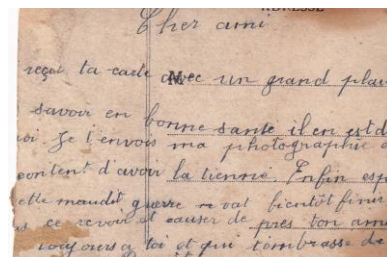 ADRESSE
Cher ami
reçot ta carte avec un grand plai
savoir en bonne santé il en est d
oi Je t'envois ma photographie
content d'avoir la tienne. Enfin esp
ette maudit guerre vat bientôt finir
ce revoir et causer de près ton ami
toujours a toi et qui t'imbrasse de